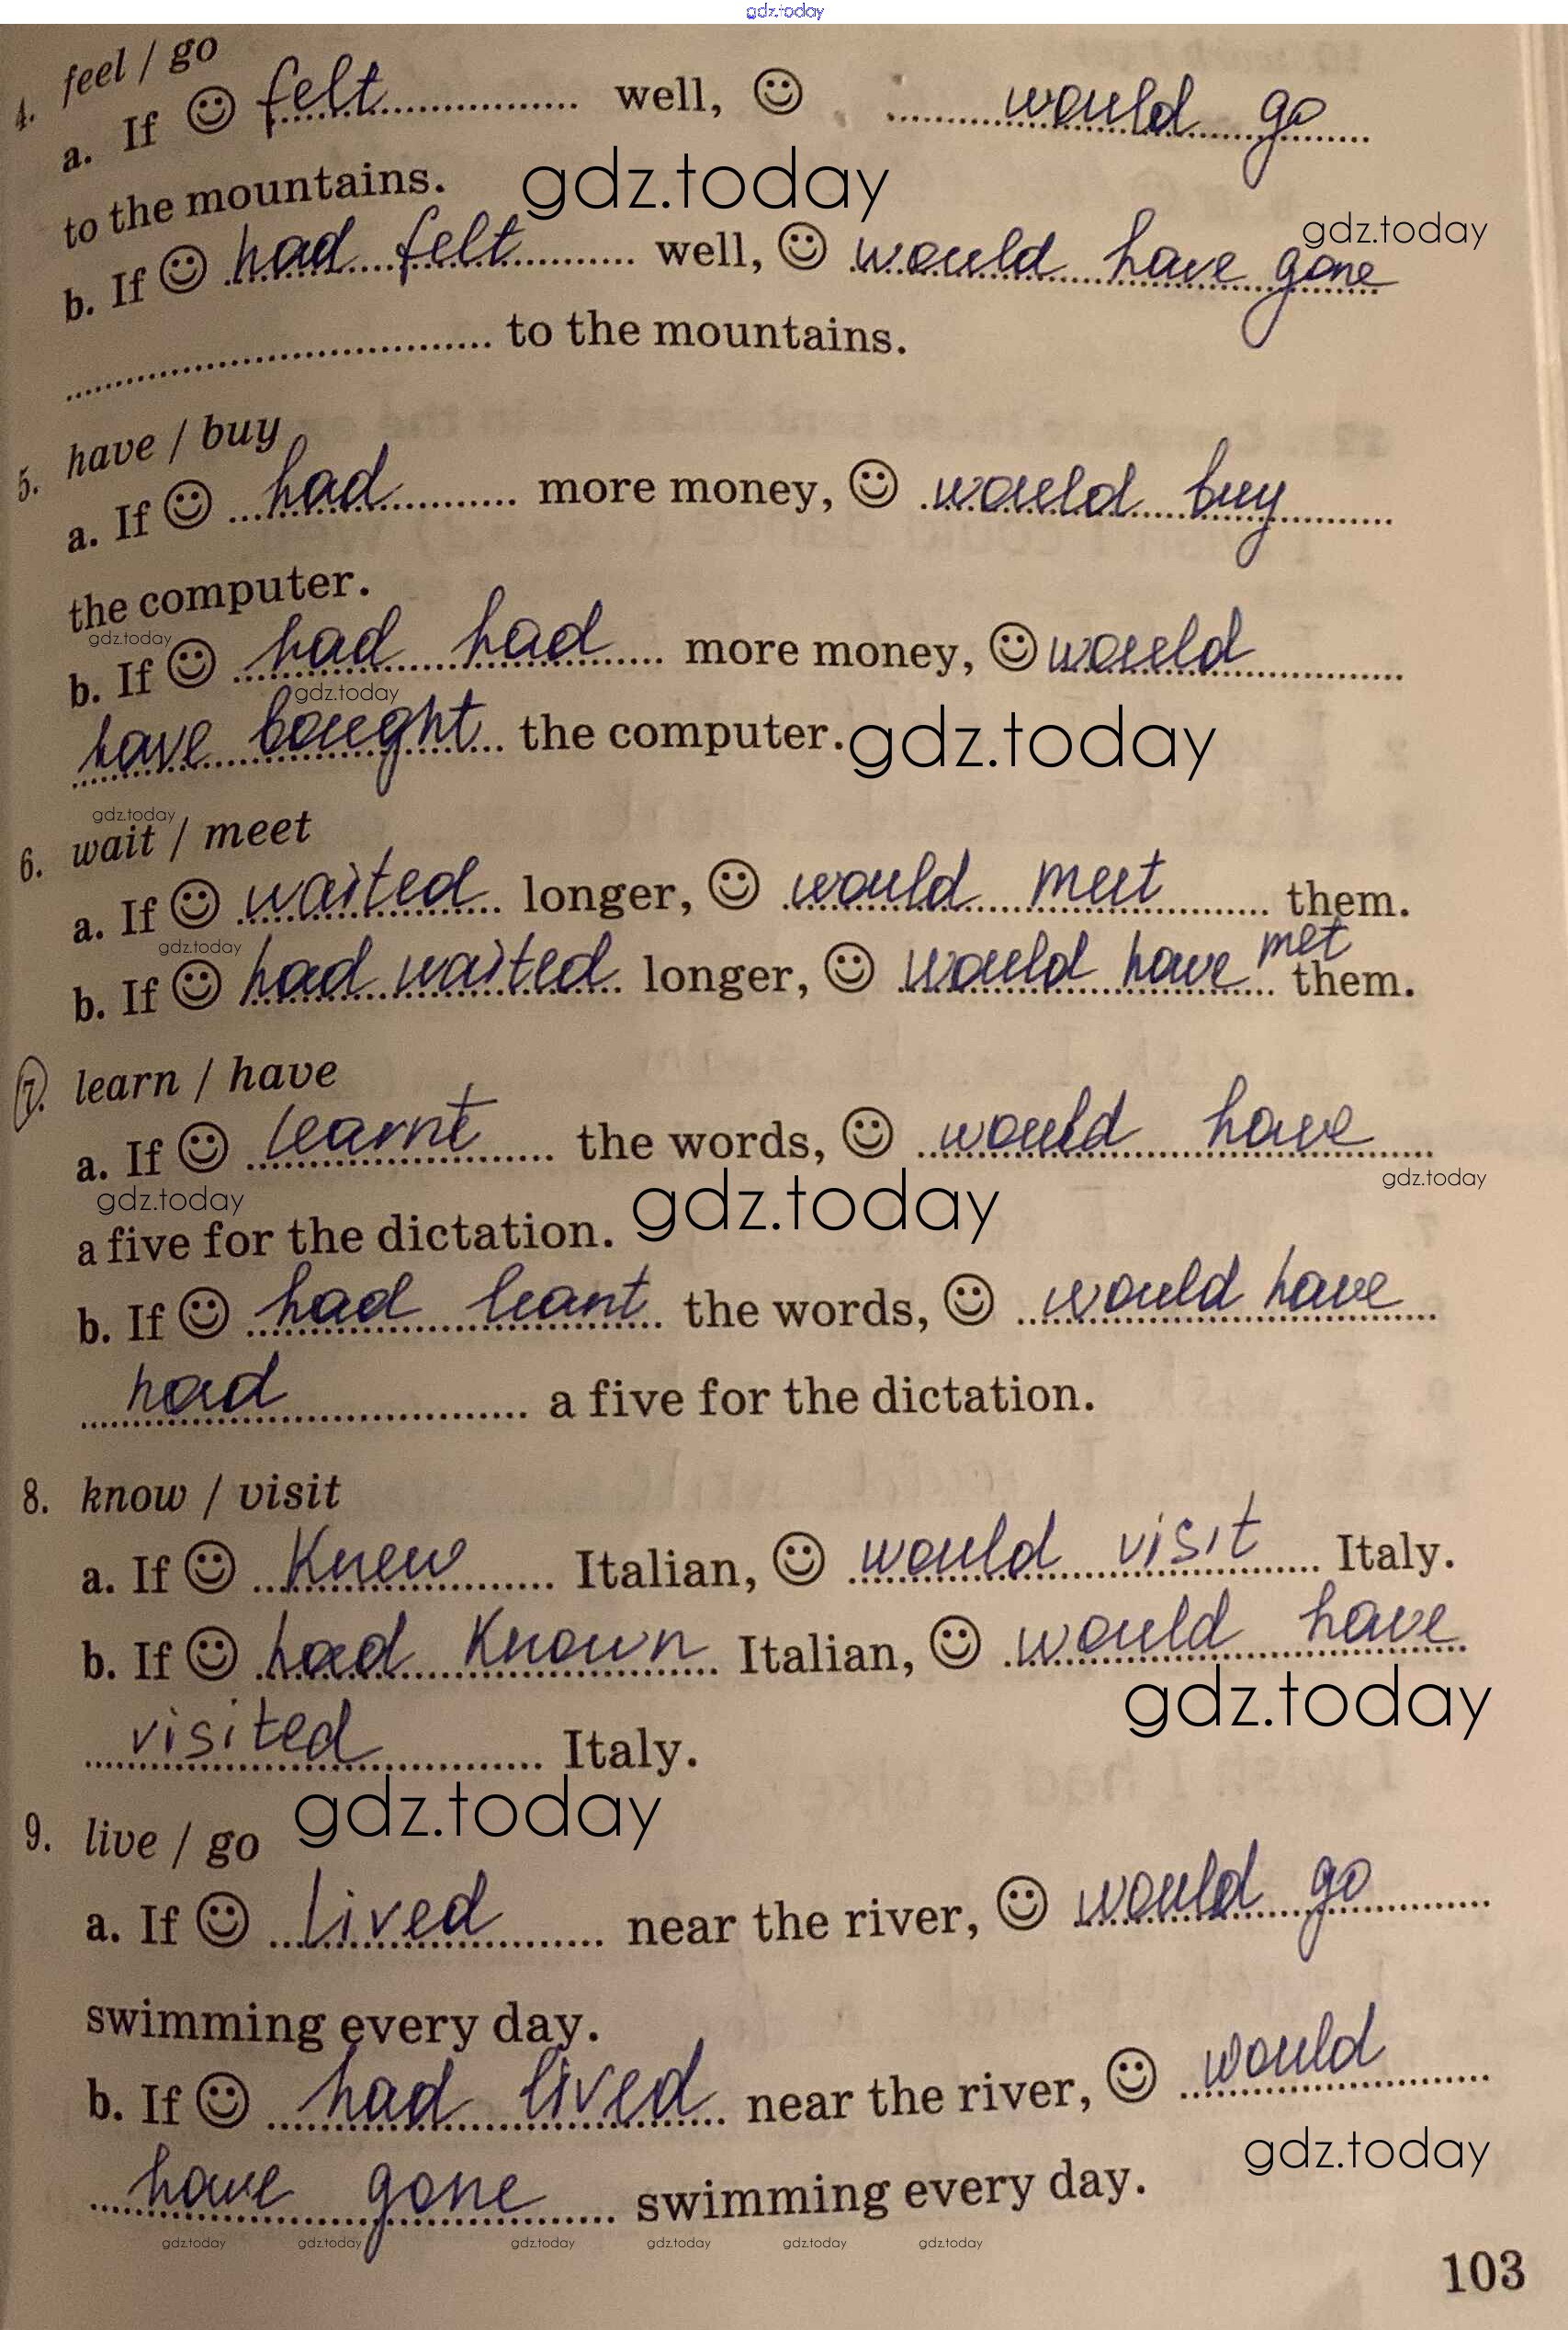 gdz.today
4. feel / go
a. If ☺ felt well, ☺ would go
to the mountains.
gdz.today
gdz.today
b. If ☺ had felt well, ☺ would have gone
to the mountains.
5. have / buy
a. If ☺ had more money, ☺ would buy
the computer.
gdz.today
b. If ☺ had had more money, ☺ would
gdz.today
have bought the computer.
gdz.today
gdz.today
6. wait / meet
a. If ☺ waited longer, ☺ would meet them.
gdz.today
b. If ☺ had waited longer, ☺ would have met them.
7. learn / have
a. If ☺ learnt the words, ☺ would have
gdz.today
gdz.today
gdz.today
a five for the dictation.
b. If ☺ had leant the words, ☺ would have
had a five for the dictation.
8. know / visit
a. If ☺ knew Italian, ☺ would visit Italy.
b. If ☺ had known Italian, ☺ would have
gdz.today
visited Italy.
gdz.today
9. live / go
a. If ☺ lived near the river, ☺ would go
swimming every day.
b. If ☺ had lived near the river, ☺ would
gdz.today
have gone swimming every day.
gdz.today gdz.today gdz.today gdz.today gdz.today gdz.today
103